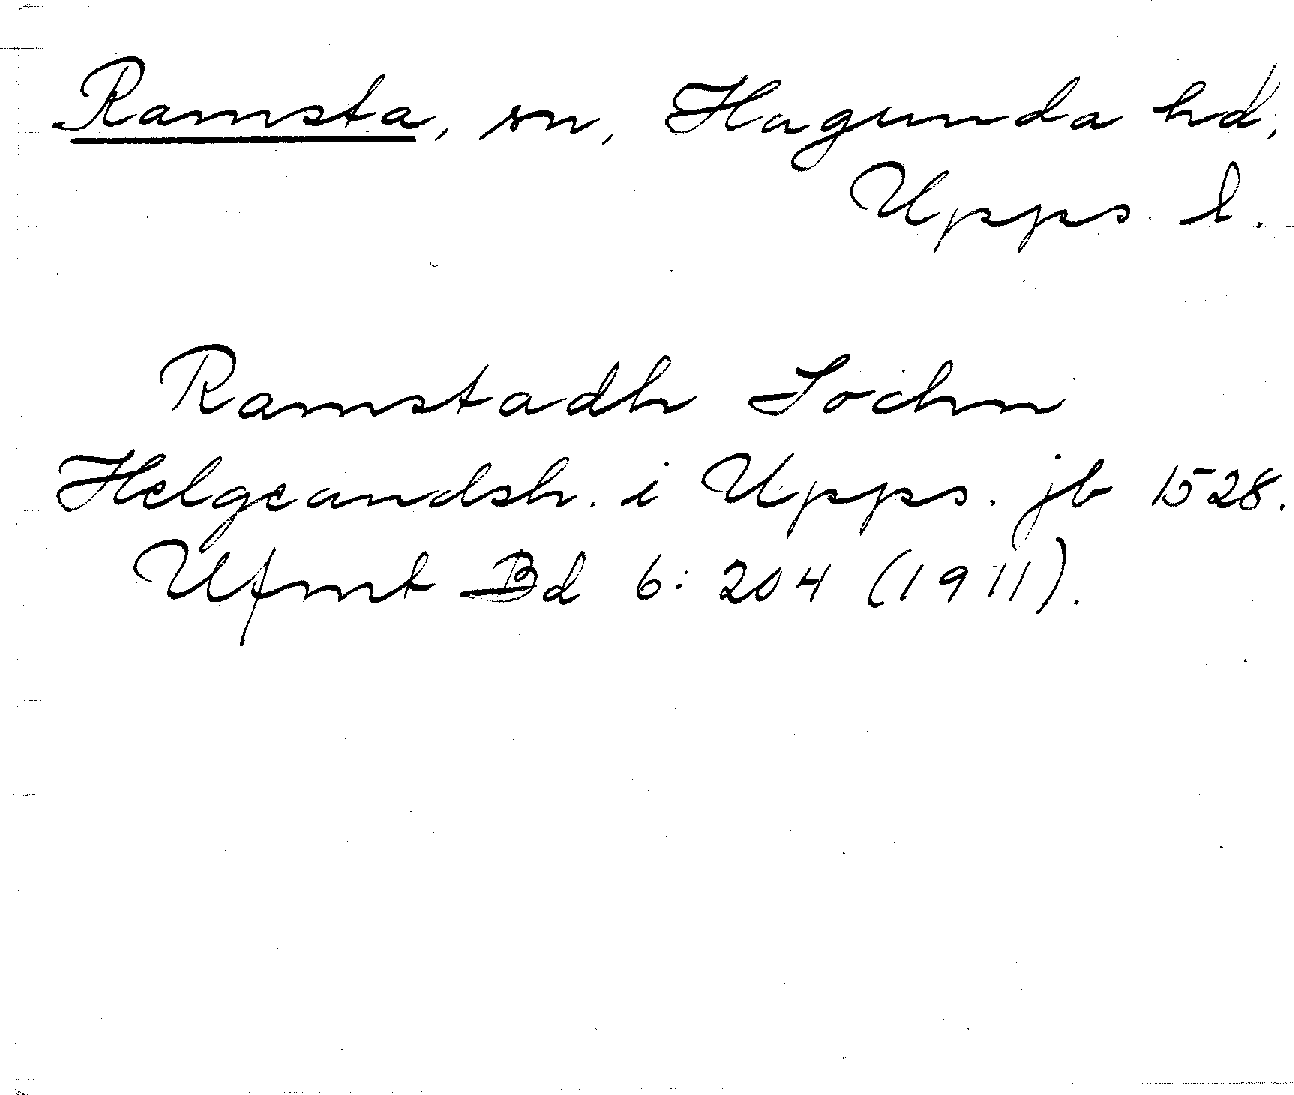 Ramsta, sn, Hagunda hd,
Upps. l.
Ramstadh Sochn
Helgeandsh. i Upps. jb 1528.
Ufmt Bd 6: 204 (1911).